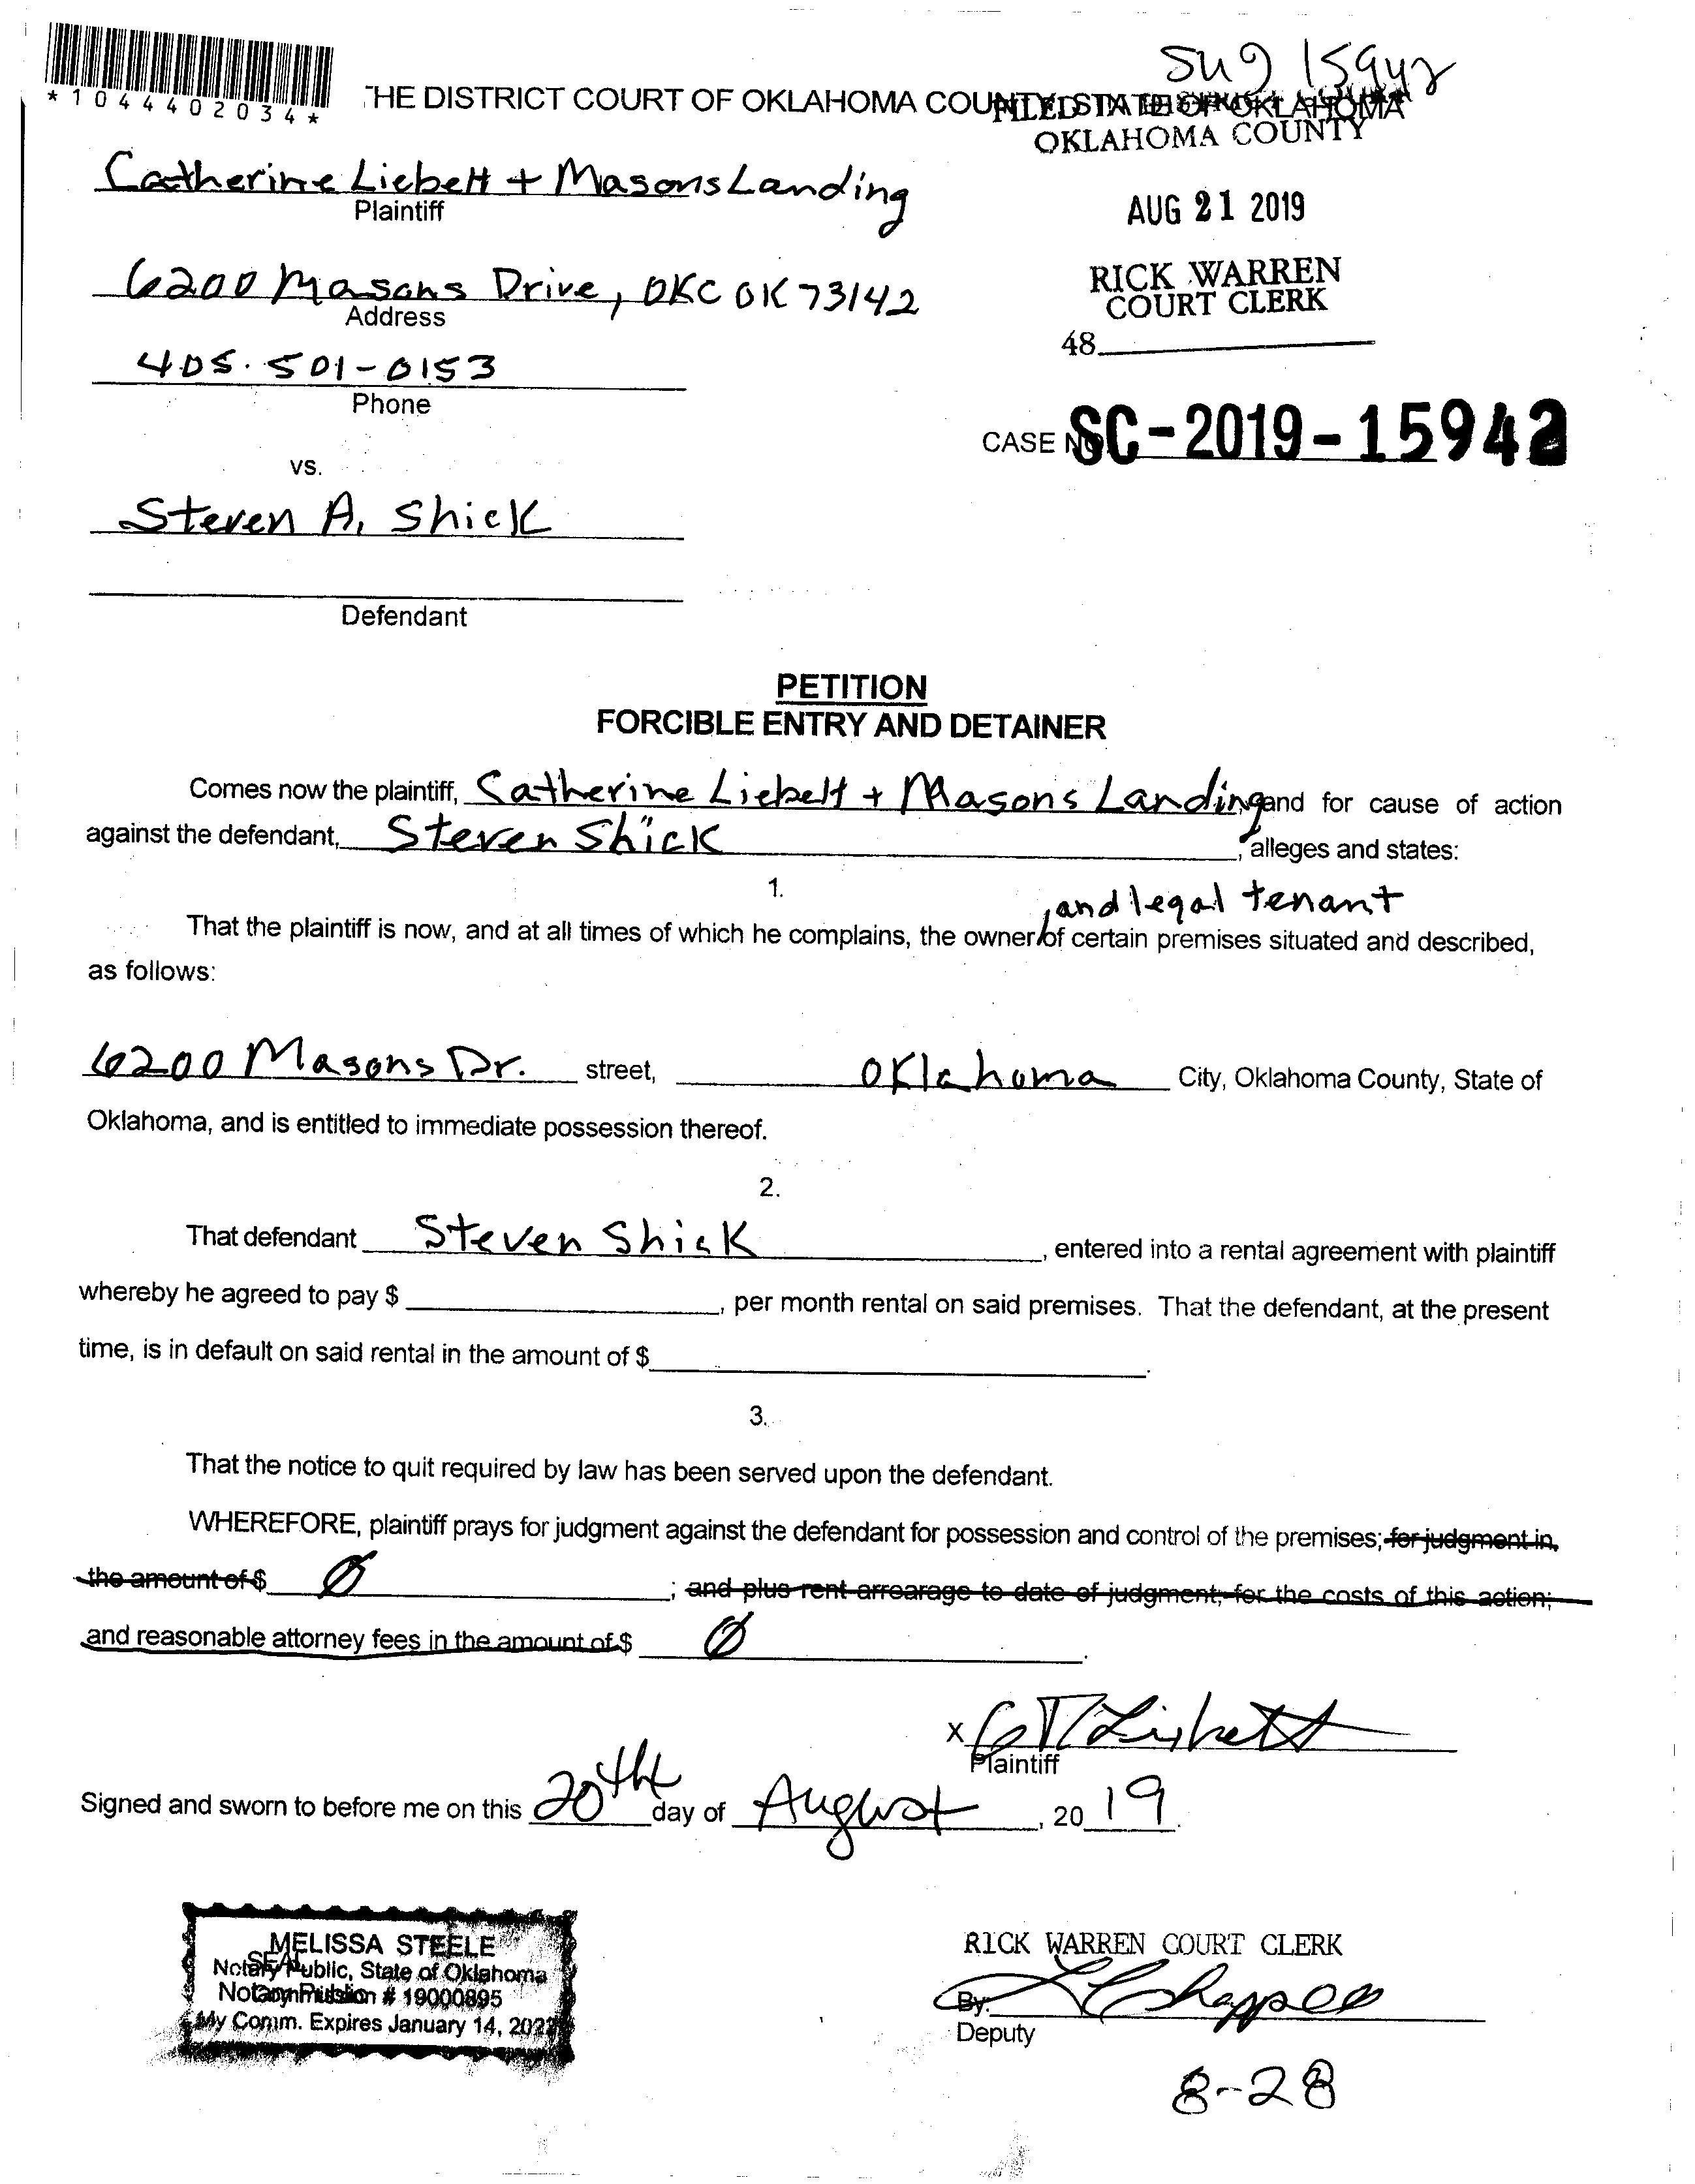 *1044402034*
THE DISTRICT COURT OF OKLAHOMA COUNTY, STATE OF OKLAHOMA
FILED IN DISTRICT COURT
OKLAHOMA COUNTY
Catherine Liebelt + Masons Landing
Plaintiff
AUG 21 2019
6200 Masons Drive, OKC OK 73142
Address
RICK WARREN
COURT CLERK
48
405.501-0153
Phone
CASE NO. SC-2019-15942
vs.
Steven A. Shick
Defendant
PETITION
FORCIBLE ENTRY AND DETAINER
Comes now the plaintiff, Catherine Liebelt + Masons Landing and for cause of action
against the defendant, Steven Shick, alleges and states:
1.
, and legal tenant
That the plaintiff is now, and at all times of which he complains, the owner of certain premises situated and described,
as follows:
6200 Masons Dr. street, Oklahoma City, Oklahoma County, State of
Oklahoma, and is entitled to immediate possession thereof.
2.
That defendant Steven Shick, entered into a rental agreement with plaintiff
whereby he agreed to pay $, per month rental on said premises. That the defendant, at the present
time, is in default on said rental in the amount of $.
3.
That the notice to quit required by law has been served upon the defendant.
WHEREFORE, plaintiff prays for judgment against the defendant for possession and control of the premises; for judgment in
the amount of $ Ø ; and plus rent arrearage to date of judgment; for the costs of this action;
and reasonable attorney fees in the amount of $ Ø.
X
Plaintiff
Signed and sworn to before me on this 20th day of August, 2019.
MELISSA STEELE
SEAL
Notary Public, State of Oklahoma
# 19000895
My Comm. Expires January 14, 202
RICK WARREN COURT CLERK
By:
Deputy
8-28